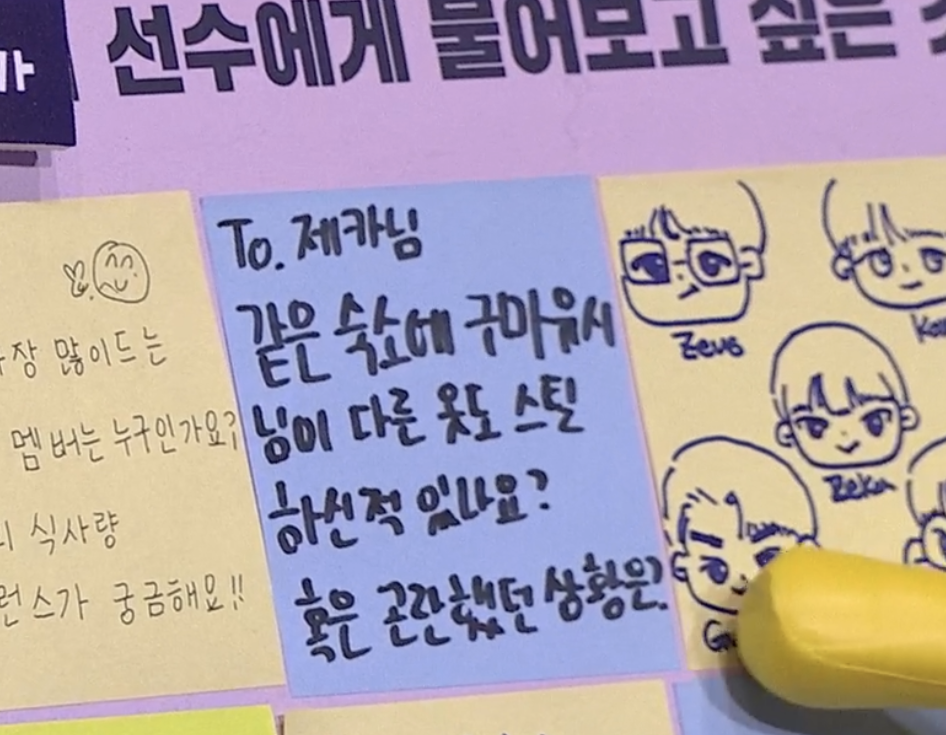 가
선수에게 물어보고 싶은
장 많이드는
멤버는 누구인가요?
식사량
런스가 궁금해요!!
To. 제카님
같은 숙소에 구마유시
님이 다른 옷도 스틸
하신적 있나요?
혹은 곤란했던 상황은?
Zeus
Zeka